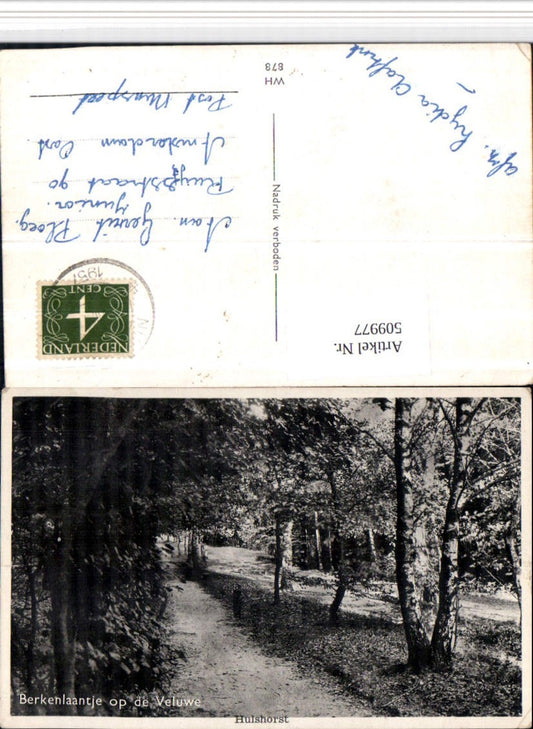 Afz. Lydia
Aan. Gerrit Ploeg.
Junior.
Ruyschstraat 90
Amsterdam Oost.
Post Nunspeet
WH
878
Nadruk verboden
195
4
CENT
NEDERLAND
Artikel Nr.
509977
Berkenlaantje op de Veluwe
Hulshorst